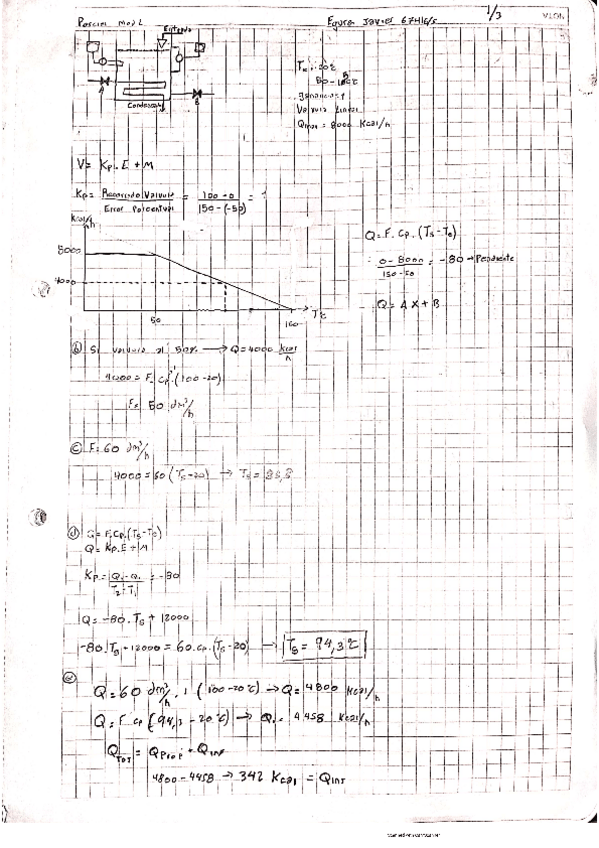 Parcial Mod 2
1/3
NOTA
Entrada
A
B
Condensado
80 -
Ganancia = 1
Valvula lineal
Qmax = 8000 Kcal/h
V = Kp. E + M
Kp = Recorrido Valvula / Error Porcentual = 100 - 0 / 150 - (-50) = 1
Kcal/h
Q = F. Cp. (Ts - Te)
8000
0 - 8000 / 150 - 50 = -80 → Pendiente
4000
T°C
50
Q = A X + B
b) Si valvula al 50% → Q = 4000 Kcal/h
4000 = F. Cp. (100 - 20)
F = 50 dm³/h
c) F = 60 dm³/h
4000 = 60 (Ts - 20) → Ts =
d) Q = F. Cp. (Ts - Te)
Q = Kp. E + M
Kp = Q2 - Q1 / T2 - T1 = -80
Q = -80. Ts + 12000
-80. Ts + 12000 = 60. Cp. (Ts - 20) → Ts = 94,3°C
e) Q = 60 dm³/h . 1 (100 - 20°C) → Q = 4800 Kcal/h
Q = F. Cp (94,3 - 20°C) → Q = 4.458 Kcal/h
QTOT = QProp + QInt
4800 - 4458 → 342 Kcal = QInt